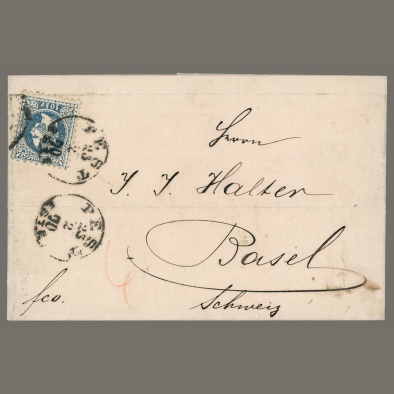 PEST
Herrn
J. J. Halter
PEST
Basel
fco.
Schweiz